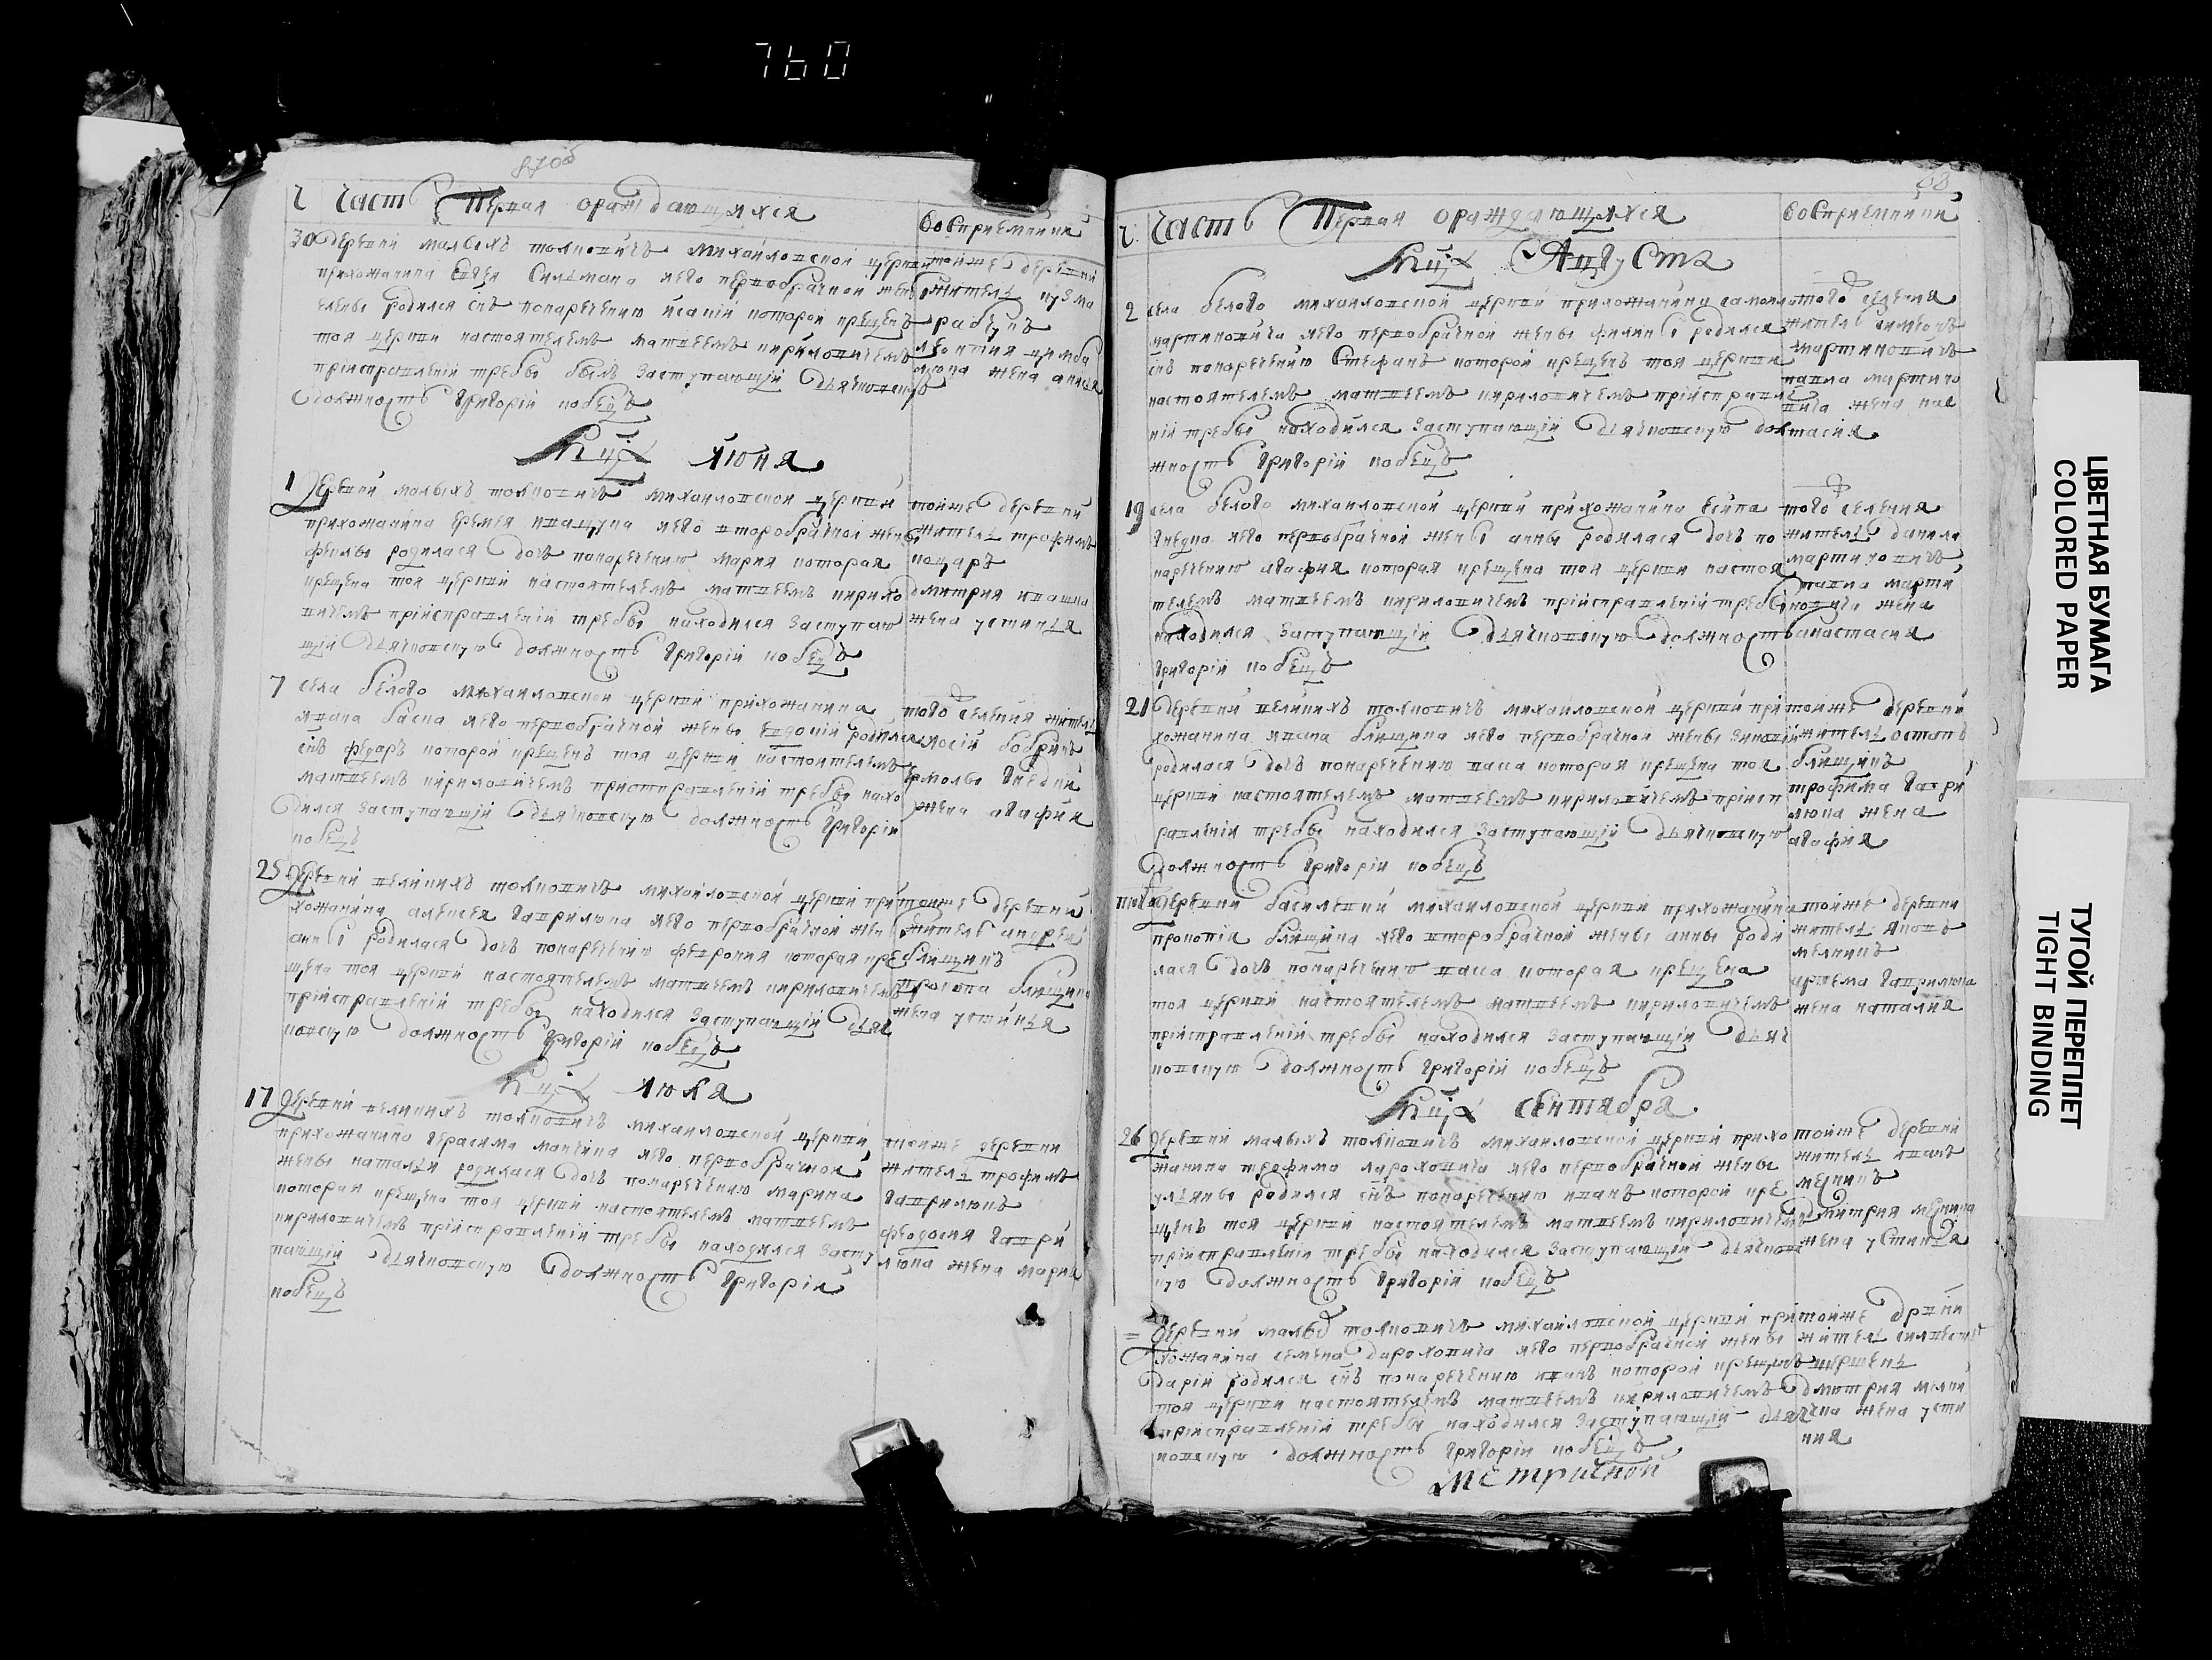 760
870б
Ч Часть Первая ораждающихся
восприемники
30 деревни малыхъ толковичъ михаиловской церкви
прихожанина его первобрачной жены
елены родился снъ понаречению которой крещенъ
тоя церкви настоятелемъ матвеемъ кириловичемъ
приисправлении требы былъ заступающий дьячковскую
должность григорий кобецъ
тойже деревни
житель кузма
жена
июня
1 деревни малыхъ толковичъ михаиловской церкви
прихожанина еремея иващука иего второбрачной жены
феклы родилася дочь понаречению мария которая
крещена тоя церкви настоятелемъ матвеемъ кирило
вичемъ приисправлении требы находился заступаю
щий дьячковскую должность григорий кобецъ
тойже деревни
житель трофимъ
поцаръ
дмитрия
жена устиния
7 села белого михаиловской церкви прихожанина
ивана баска иего первобрачной жены евдокии родился
снъ федоръ которой крещенъ тоя церкви настоятелемъ
матвеемъ кириловичемъ приисправлении требы нахо
дился заступающий дьячковскую должность григорий
кобецъ
того селения житель
бобрикъ
жена агафия
25 деревни великихъ толковичъ михаиловской церкви при
хожанина алексея гаврилюка иего первобрачной жены
анны родилася дочь понаречению феврония которая кре
щена тоя церкви настоятелемъ матвеемъ кириловичемъ
приисправлении требы находился заступающий дьяч
ковскую должность григорий кобецъ
тойже деревни
житель андрей
блищикъ
прокопа блищика
жена устиния
июля
17 деревни великихъ толковичъ михаиловской церкви
прихожанина герасима манчика иего первобрачной
жены наталии родилася дочь понаречению марина
которая крещена тоя церкви настоятелемъ матвеемъ
кириловичемъ приисправлении требы находился засту
пающий дьячковскую должность григорий
кобецъ
тойже деревни
житель трофимъ
гаврилюкъ
феодосия гаври
люка жена мария
88
Ч Часть Первая ораждающихся
восприемники
Августа
2 села белого михаиловской церкви прихожанина
мартиновича иего первобрачной жены родился
снъ понаречению стефанъ которой крещенъ тоя церкви
настоятелемъ матвеемъ кириловичемъ приисправле
нии требы находился заступающий дьячковскую дол
жность григорий кобецъ
того селения
житель симеонъ
мартиновичъ
павла мартино
вича жена нас
тасия
19 села белого михаиловской церкви прихожанина
иего первобрачной жены анны родилася дочь по
наречению агафия которая крещена тоя церкви настоя
телемъ матвеемъ кириловичемъ приисправлении требы
находился заступающий дьячковскую должность
григорий кобецъ
того селения
житель данила
мартиновичъ
павла марти
новича жена
анастасия
21 деревни великихъ толковичъ михаиловской церкви при
хожанина ивана блищика иего первобрачной жены зиновии
родилася дочь понаречению васса которая крещена тоя
церкви настоятелемъ матвеемъ кириловичемъ приисп
равлении требы находился заступающий дьячковскую
должность григорий кобецъ
тойже деревни
житель остапъ
блищикъ
трофима гаври
люка жена
агафия
деревни михаиловской церкви прихожанина
прокопия блищика иего второбрачной жены анны роди
лася дочь понаречению васса которая крещена
тоя церкви настоятелемъ матвеемъ кириловичемъ
приисправлении требы находился заступающий дьяч
ковскую должность григорий кобецъ
тойже деревни
житель яковъ
мелникъ
артема гаврилюка
жена наталия
сентября
26 деревни малыхъ толковичъ михаиловской церкви прихо
жанина трофима дороховича иего первобрачной жены
уляны родился снъ понаречению иванъ которой кре
щенъ тоя церкви настоятелемъ матвеемъ кириловичемъ
приисправлении требы находился заступающий дьячковс
кую должность григорий кобецъ
тойже деревни
житель иванъ
мелникъ
дмитрия мелника
жена устиния
= деревни малых толковичъ михаиловской церкви при
хожанина семена дороховича иего первобрачной жены
дарии родился снъ понаречению иванъ которой крещенъ
тоя церкви настоятелемъ матвеемъ кириловичемъ
приисправлении требы находился заступающий дьяч
ковскую должность григорий кобецъ
тойже
житель
дмитрия
жена усти
ния
метричной
ЦВЕТНАЯ БУМАГА
COLORED PAPER
ТУГОЙ ПЕРЕПЛЕТ
TIGHT BINDING